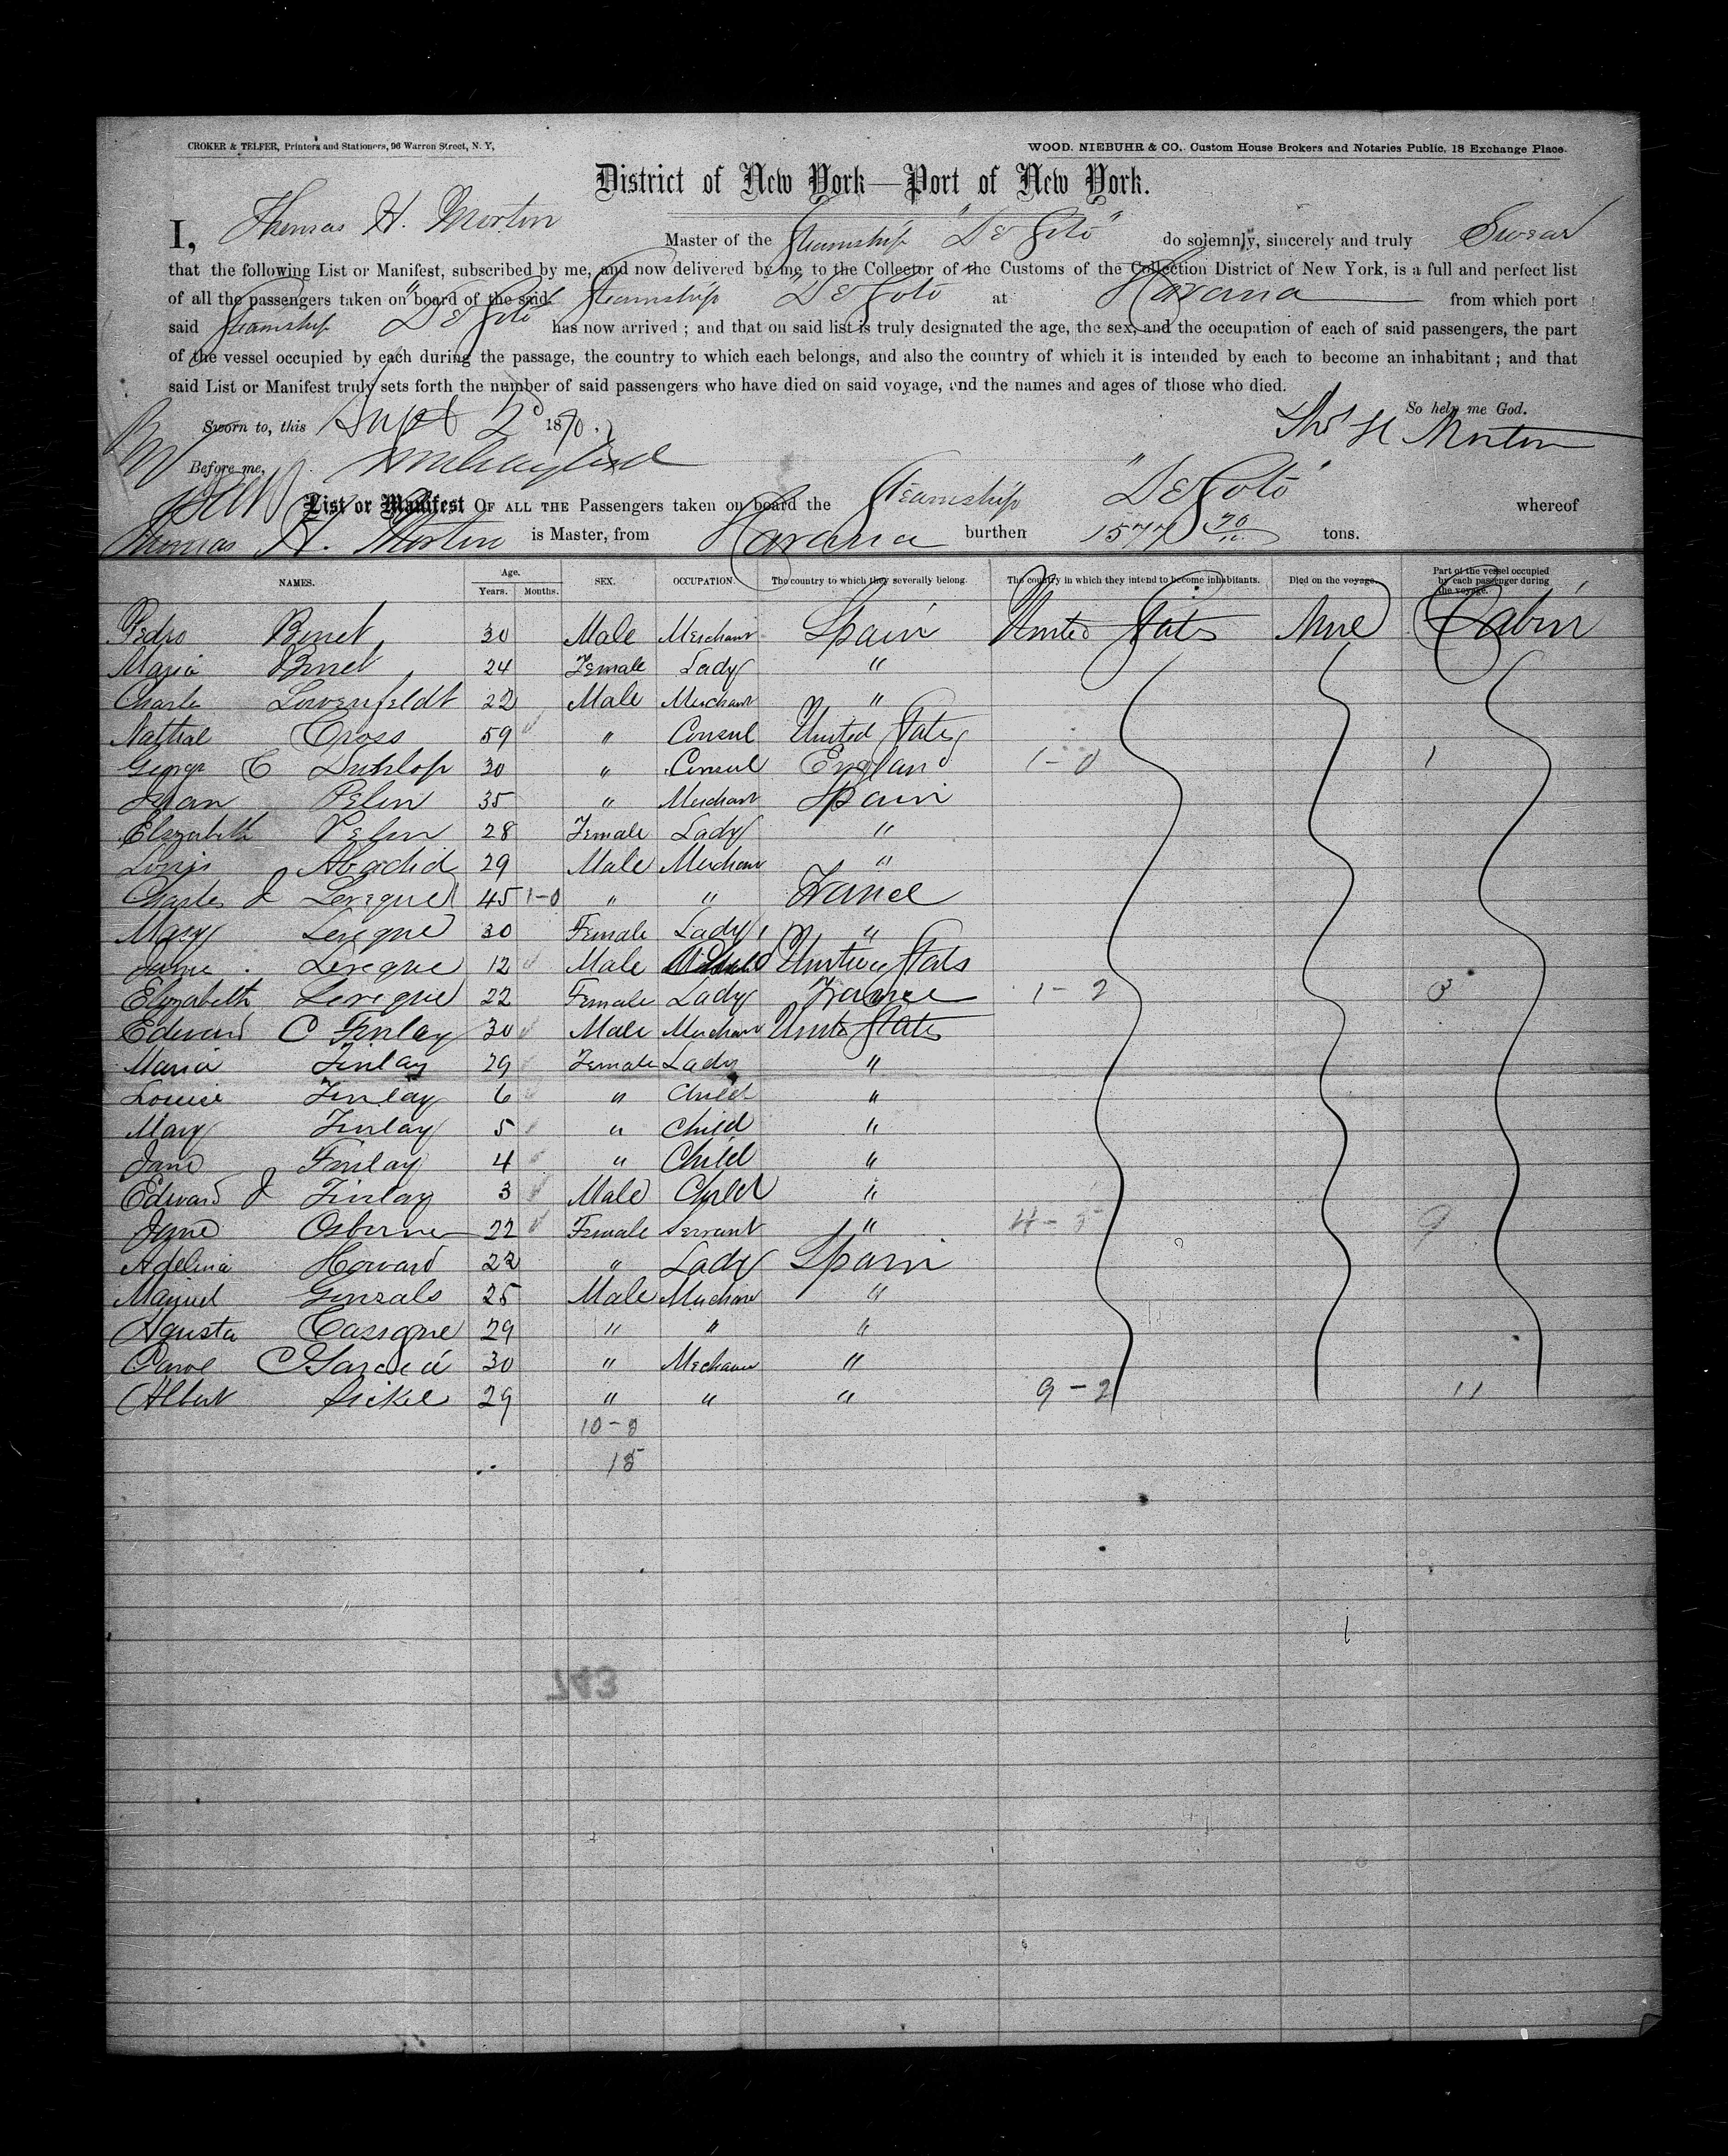 CROKER & TELFER, Printers and Stationers, 96 Warren Street, N. Y, WOOD. NIEBUHR & CO., Custom House Brokers and Notaries Public, 18 Exchange Place.
District of New York—Port of New York.
I, Thomas H. Morton Master of the Steamship "De Soto" do solemnly, sincerely and truly Swear
that the following List or Manifest, subscribed by me, and now delivered by me to the Collector of the Customs of the Collection District of New York, is a full and perfect list
of all the passengers taken on board of the said Steamship "De Soto at Havana from which port
said Steamship De Soto has now arrived; and that on said list is truly designated the age, the sex, and the occupation of each of said passengers, the part
of the vessel occupied by each during the passage, the country to which each belongs, and also the country of which it is intended by each to become an inhabitant; and that
said List or Manifest truly sets forth the number of said passengers who have died on said voyage, and the names and ages of those who died.
So help me God.
Sworn to, this Sept 2d 1870. Thos H Morton
Before me,
List or Manifest OF ALL THE Passengers taken on board the Steamship "De Soto" whereof
Thomas H. Morton is Master, from Havana burthen 1577 tons.
NAMES. Age. Years. Months. SEX. OCCUPATION. The country to which they severally belong. The country in which they intend to become inhabitants. Died on the voyage. Part of the vessel occupied by each passenger during the voyage.
Pedro Binet 30 Male Merchant Spain United States None Cabin
Maria Binet 24 Female Lady "
Charles Lowenfeldt 22 Male Merchant "
Nathal Cross 59 " Consul United States
George C Dunlop 30 " Consul England 1-0 1
Juan Pelin 35 " Merchant Spain
Elizabeth Pelin 28 Female Lady "
Louis Abadid 29 Male Merchant "
Charles J Leveque 45 1-0 " " France
Mary Leveque 30 Female Lady "
Leveque 12 Male United States
Elizabeth Leveque 22 Female Lady France 1-2 3
Edward C Finlay 30 Male Merchant United States
Maria Finlay 29 Female Lady "
Louise Finlay 6 " Child "
Mary Finlay 5 " Child "
Jane Finlay 4 " Child "
Edward J Finlay 3 Male Child "
Jane Osborne 22 Female Servant " 4-5 9
Adelina Howard 22 " Lady Spain
Manuel Gonzals 25 Male Merchant "
Agusta Cassagne 29 " " "
C Garcia 30 " Mechanic "
Albert Sickel 29 " " " 9-2 11
10-8
18
743